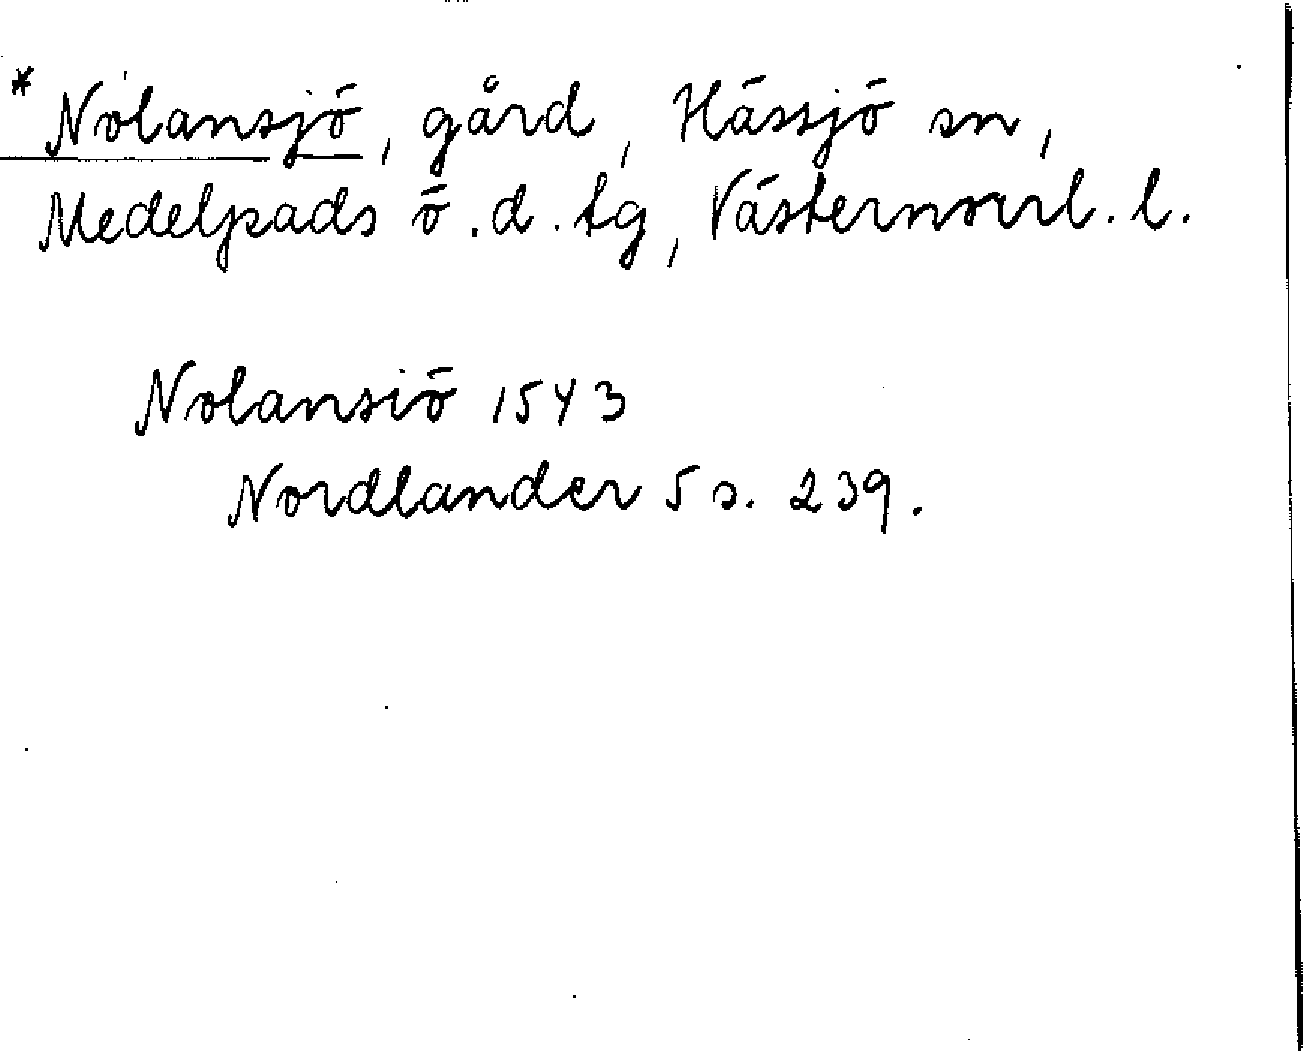 * Nolansjö, gård, Hässjö sn,
Medelpads ö.d. tg, Västernorrl. l.
Nolansiö 1543
Nordlander 5 s. 239.